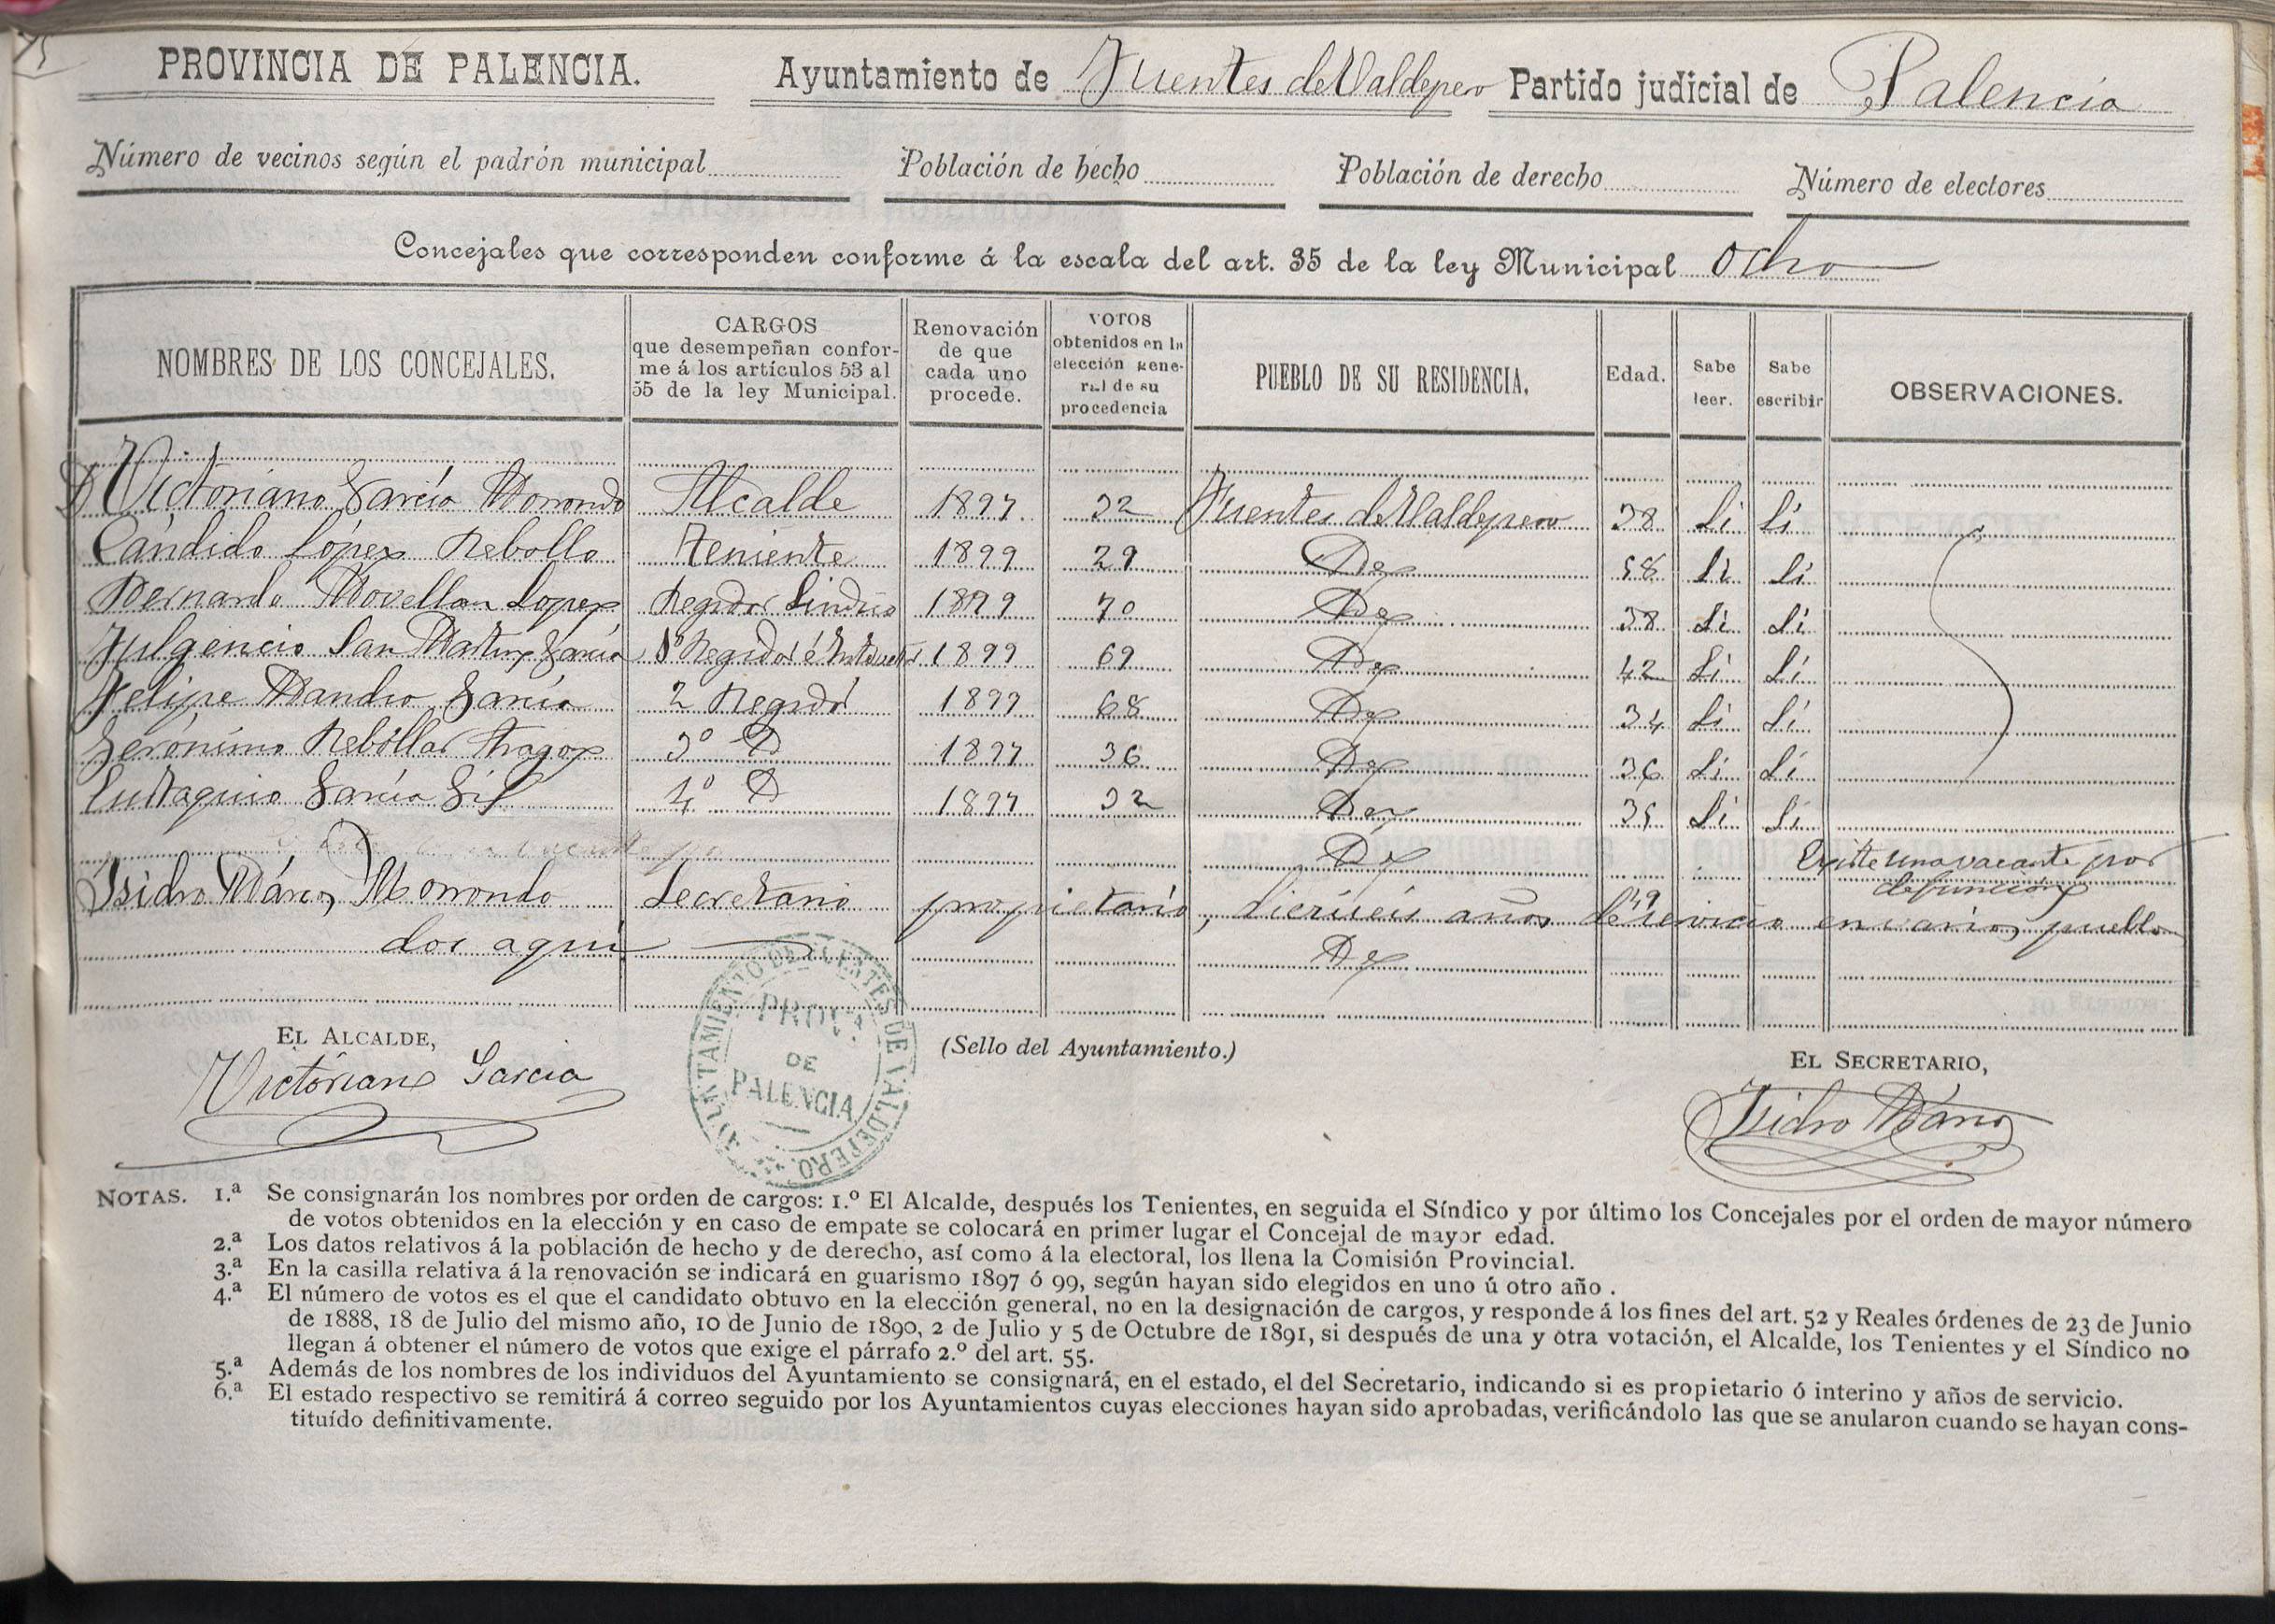 PROVINCIA DE PALENCIA. Ayuntamiento de Fuentes de Valdepero Partido judicial de Palencia
Número de vecinos según el padrón municipal Población de hecho Población de derecho Número de electores
Concejales que corresponden conforme á la escala del art. 35 de la ley Municipal Ocho
NOMBRES DE LOS CONCEJALES.
CARGOS
que desempeñan confor-
me á los artículos 53 al
55 de la ley Municipal.
Renovación
de que
cada uno
procede.
VOTOS
obtenidos en la
elección gene-
ral de su
procedencia
PUEBLO DE SU RESIDENCIA.
Edad.
Sabe
leer.
Sabe
escribir
OBSERVACIONES.
D Victoriano García Morrondo Alcalde 1897 32 Fuentes de Valdepero 38 Si Sí
Cándido López Rebollo Teniente 1899 29 58 Si Si
Bernardo Movellan Lopez Regidor Sindico 1899 70 38 Si Si
Fulgencio San Martin García 1º Regidor é 1899 69 42 Si Sí
Felipe Mancho García 2 Regidor 1899 68 34 Si Sí
Gerónimo Rebollar Aragon 3º D 1897 36 36 Si Si
Eustaquio García Gil 4º D 1897 32 35 Si Si
Existe una vacante por
defunción
Isidro Márcos Morrondo Secretario propietario, dieciseis años de servicio en varios pueblos
dos aquí
EL ALCALDE,
Victoriano Garcia
AYUNTAMIENTO DE FUENTES DE VALDEPERO.
PROV.ª
DE
PALENCIA
(Sello del Ayuntamiento.)
EL SECRETARIO,
Isidro Márcos
NOTAS. 1.ª Se consignarán los nombres por orden de cargos: 1.º El Alcalde, después los Tenientes, en seguida el Síndico y por último los Concejales por el orden de mayor número
de votos obtenidos en la elección y en caso de empate se colocará en primer lugar el Concejal de mayor edad.
2.ª Los datos relativos á la población de hecho y de derecho, así como á la electoral, los llena la Comisión Provincial.
3.ª En la casilla relativa á la renovación se indicará en guarismo 1897 ó 99, según hayan sido elegidos en uno ú otro año.
4.ª El número de votos es el que el candidato obtuvo en la elección general, no en la designación de cargos, y responde á los fines del art. 52 y Reales órdenes de 23 de Junio
de 1888, 18 de Julio del mismo año, 10 de Junio de 1890, 2 de Julio y 5 de Octubre de 1891, si después de una y otra votación, el Alcalde, los Tenientes y el Síndico no
llegan á obtener el número de votos que exige el párrafo 2.º del art. 55.
5.ª Además de los nombres de los individuos del Ayuntamiento se consignará, en el estado, el del Secretario, indicando si es propietario ó interino y años de servicio.
6.ª El estado respectivo se remitirá á correo seguido por los Ayuntamientos cuyas elecciones hayan sido aprobadas, verificándolo las que se anularon cuando se hayan cons-
tituído definitivamente.